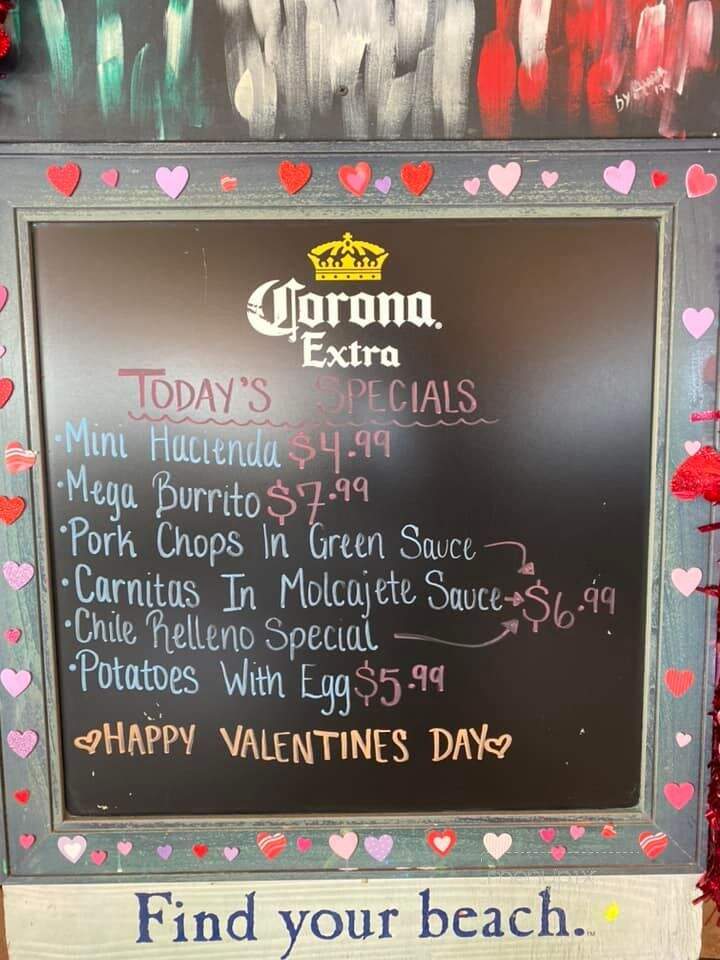 Corona.
Extra
TODAY'S SPECIALS
·Mini Hacienda $4.99
·Mega Burrito $7.99
·Pork Chops In Green Sauce
·Carnitas In Molcajete Sauce→$6.99
·Chile Relleno Special
·Potatoes With Egg $5.99
♡HAPPY VALENTINES DAY♡
Find your beach.™